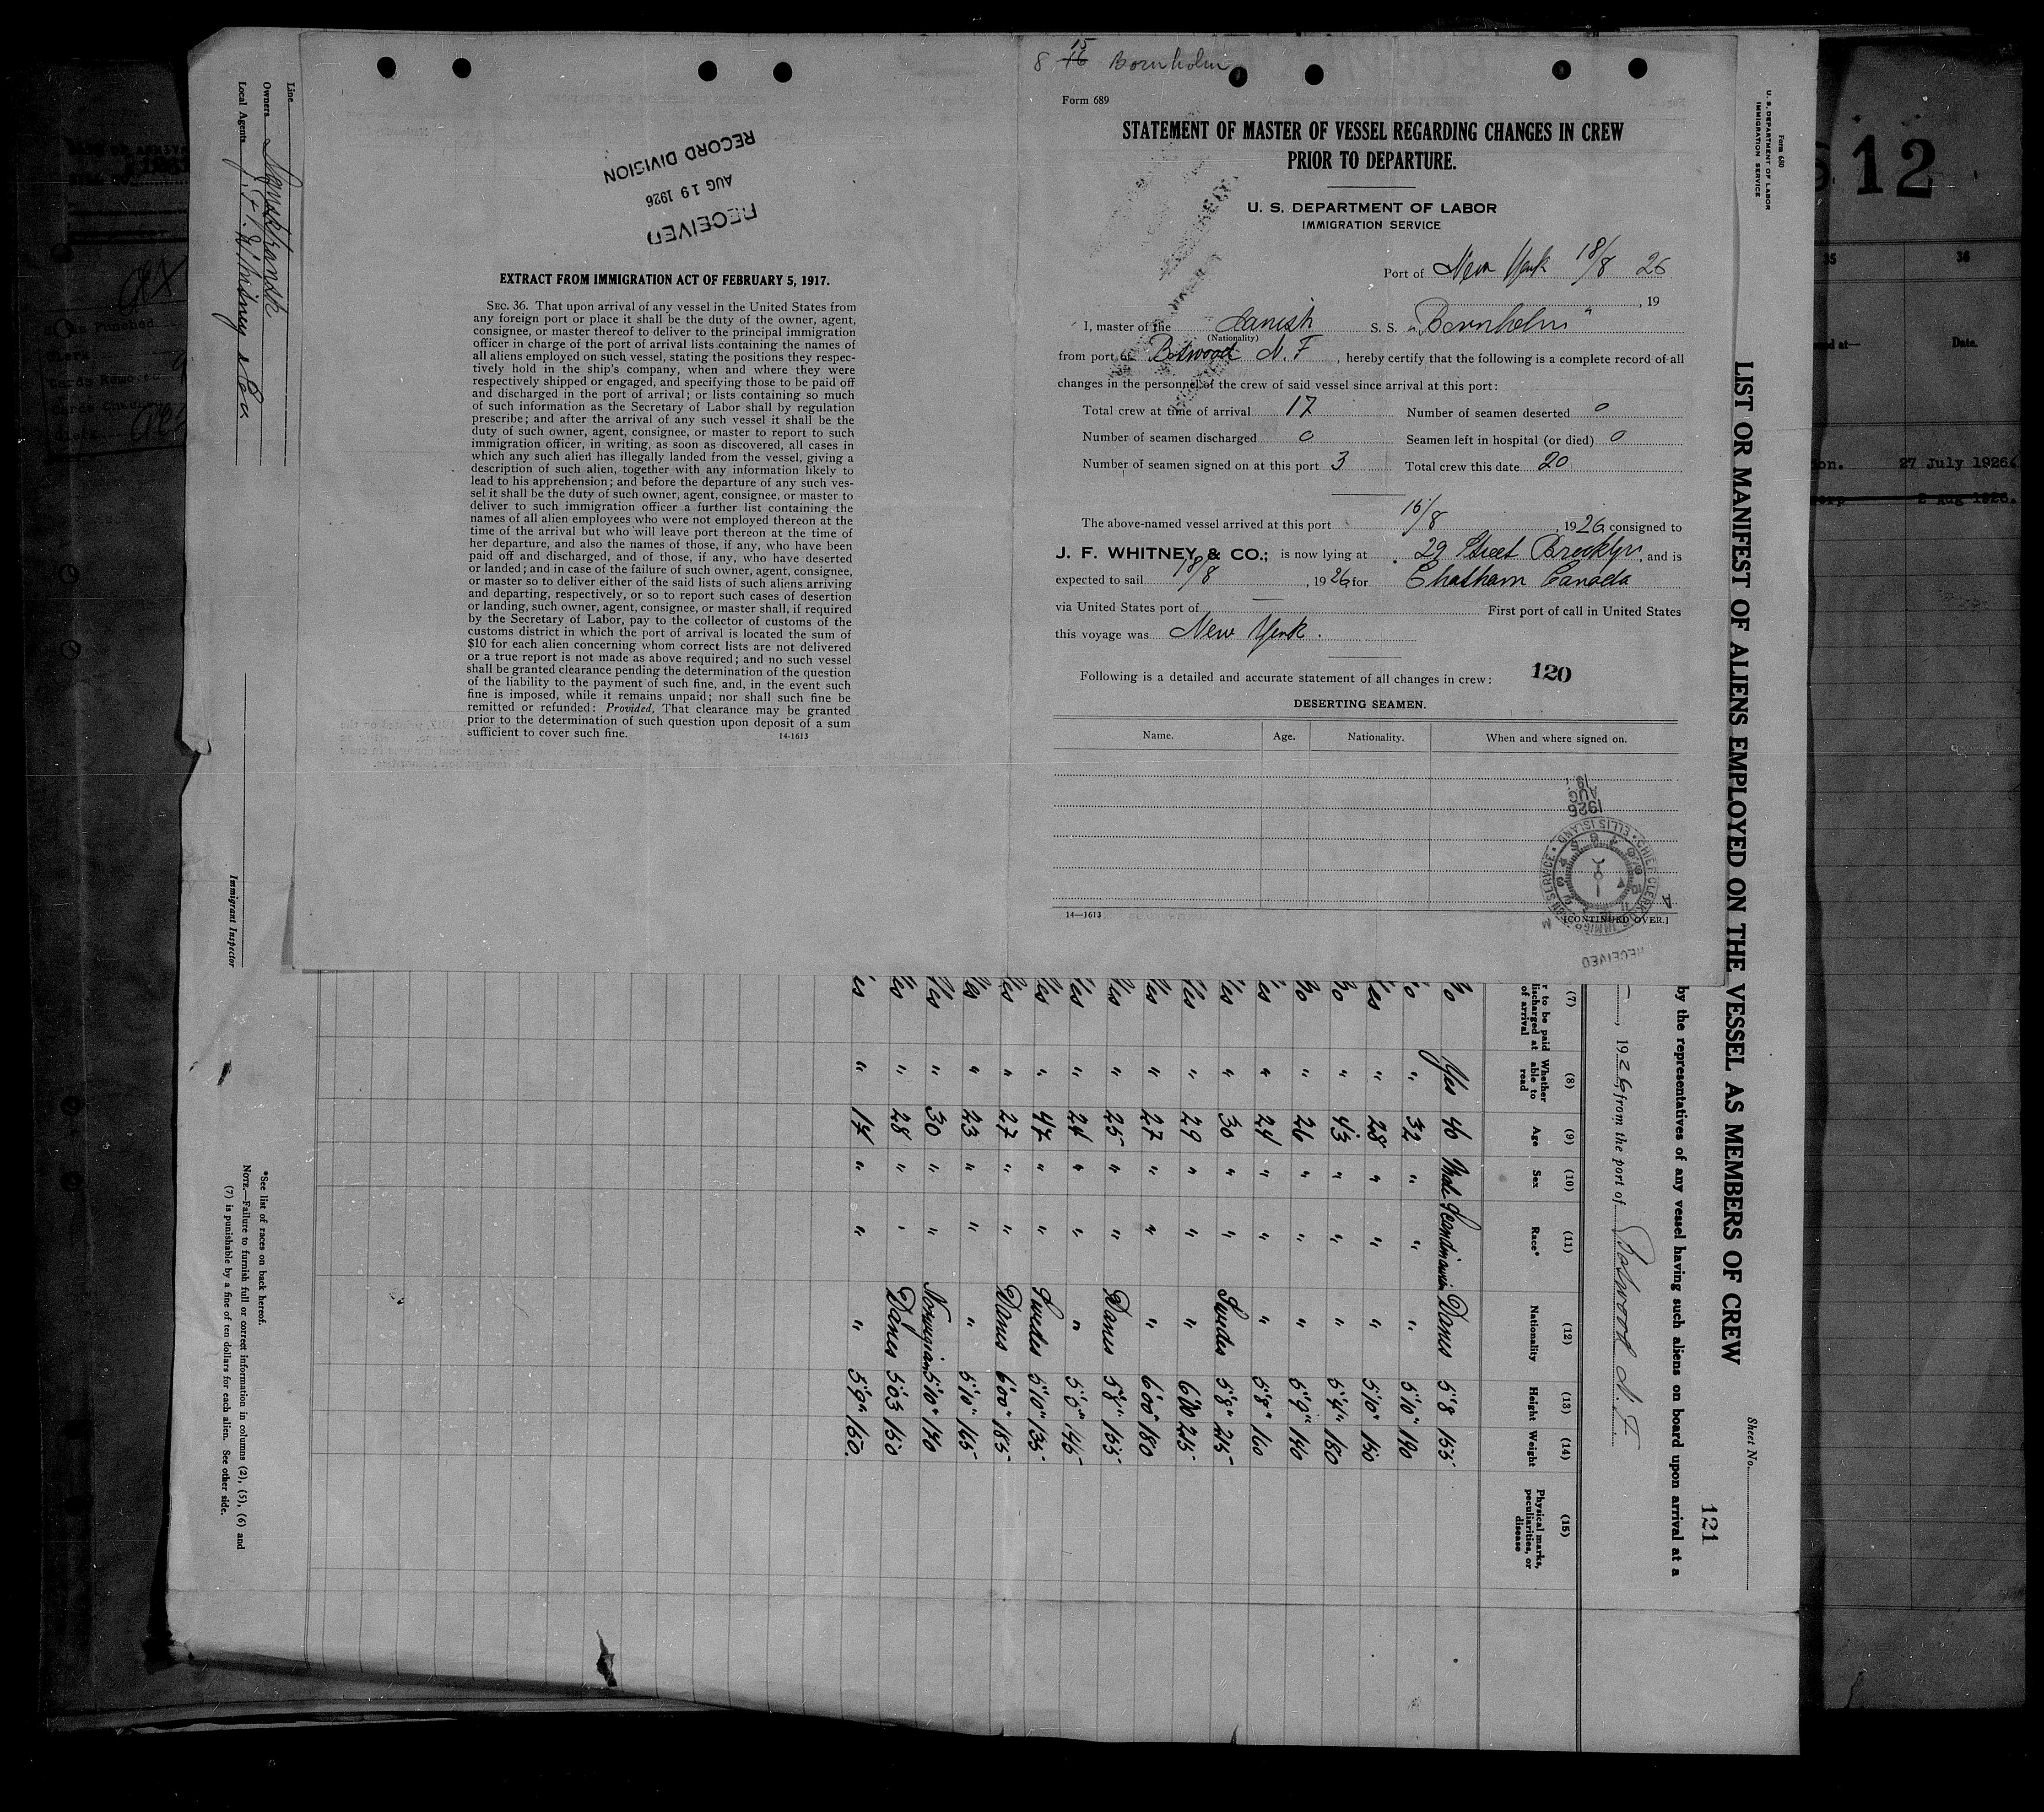 8 15
16 Bornholm
Form 689
STATEMENT OF MASTER OF VESSEL REGARDING CHANGES IN CREW
PRIOR TO DEPARTURE.
U. S. DEPARTMENT OF LABOR
IMMIGRATION SERVICE
Port of New York 18/8 26
, 19
I, master of the Danish S. S. "Bornholm"
(Nationality)
from port of Botwood N. F , hereby certify that the following is a complete record of all
changes in the personnel of the crew of said vessel since arrival at this port:
Total crew at time of arrival 17 Number of seamen deserted 0
Number of seamen discharged 0 Seamen left in hospital (or died) 0
Number of seamen signed on at this port 3 Total crew this date 20
The above-named vessel arrived at this port 16/8, 1926, consigned to
J. F. WHITNEY & CO.; is now lying at 29 Street Brooklyn, and is
expected to sail 18/8, 1926, for Chatham Canada
via United States port of — First port of call in United States
this voyage was New York.
Following is a detailed and accurate statement of all changes in crew: 120
DESERTING SEAMEN.
Name. Age. Nationality. When and where signed on.
14—1613 [CONTINUED OVER.]
1926
AUG
19
CHIEF CLERK
ELLIS ISLAND
RECEIVED
RECEIVED
AUG 19 1926
RECORD DIVISION
EXTRACT FROM IMMIGRATION ACT OF FEBRUARY 5, 1917.
SEC. 36. That upon arrival of any vessel in the United States from
any foreign port or place it shall be the duty of the owner, agent,
consignee, or master thereof to deliver to the principal immigration
officer in charge of the port of arrival lists containing the names of
all aliens employed on such vessel, stating the positions they respec-
tively hold in the ship's company, when and where they were
respectively shipped or engaged, and specifying those to be paid off
and discharged in the port of arrival; or lists containing so much
of such information as the Secretary of Labor shall by regulation
prescribe; and after the arrival of any such vessel it shall be the
duty of such owner, agent, consignee, or master to report to such
immigration officer, in writing, as soon as discovered, all cases in
which any such alien has illegally landed from the vessel, giving a
description of such alien, together with any information likely to
lead to his apprehension; and before the departure of any such ves-
sel it shall be the duty of such owner, agent, consignee, or master to
deliver to such immigration officer a further list containing the
names of all alien employees who were not employed thereon at the
time of the arrival but who will leave port thereon at the time of
her departure, and also the names of those, if any, who have been
paid off and discharged, and of those, if any, who have deserted
or landed; and in case of the failure of such owner, agent, consignee,
or master so to deliver either of the said lists of such aliens arriving
and departing, respectively, or so to report such cases of desertion
or landing, such owner, agent, consignee, or master shall, if required
by the Secretary of Labor, pay to the collector of customs of the
customs district in which the port of arrival is located the sum of
$10 for each alien concerning whom correct lists are not delivered
or a true report is not made as above required; and no such vessel
shall be granted clearance pending the determination of the question
of the liability to the payment of such fine, and, in the event such
fine is imposed, while it remains unpaid; nor shall such fine be
remitted or refunded: Provided, That clearance may be granted
prior to the determination of such question upon deposit of a sum
sufficient to cover such fine. 14-1613
Form 680
U. S. DEPARTMENT OF LABOR
IMMIGRATION SERVICE
Sheet No.
121
LIST OR MANIFEST OF ALIENS EMPLOYED ON THE VESSEL AS MEMBERS OF CREW
by the representatives of any vessel having such aliens on board upon arrival at a
, 1926, from the port of Botwood N. F.
(7) (8) (9) (10) (11) (12) (13) (14) (15)
r to be paid discharged at of arrival Whether able to read Age Sex Race* Nationality Height Weight Physical marks, peculiarities, or disease
No Yes 40 Male Scandinavian Danes 5'8 155
No " 32 " " " 5'10" 190
Yes " 28 " " " 5'10" 150
No " 43 " " " 5'4" 180
No " 26 " " " 5'9" 140
Yes " 24 " " " 5'8" 160
Yes " 30 " " Swedes 5'8" 215
Yes " 29 " " " 6'00 215
Yes " 27 " " " 6'00" 180
Yes " 25 " " Danes 5'8" 155
Yes " 24 " " " 145
Yes " 47 " " Swedes 5'10" 135
Yes " 27 " " Danes 6'00" 185
Yes " 23 " " " 5'10" 165
Yes " 30 " " Norwegian 5'10" 190
Yes " 28 " " Danes 5'03 150
Yes " 17 " " " 5'9" 150
Line
Owners
Local Agents J. F. Whitney & Co.
Immigrant Inspector
*See list of races on back hereof.
NOTE.—Failure to furnish full or correct information in columns (2), (5), (6) and
(7) is punishable by a fine of ten dollars for each alien. See other side.
612
35 36
Date.
27 July 1926
2 Aug 1926.